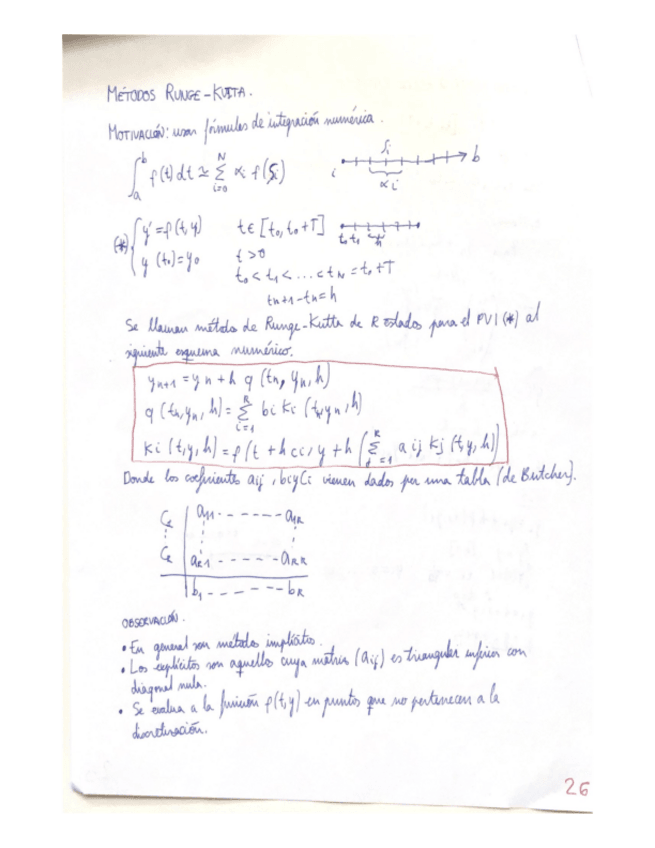 MÉTODOS RUNGE-KUTTA.
MOTIVACIÓN: usar fórmulas de integración numérica.
∫_a^b f(t)dt ≃ Σ_{i=0}^{N} αi f(ξi)
ξi b
i αi
(*) { y' = f(t,y) t∈[t0,t0+T] t0 t1 h
y(t0)=y0 t>0
t0 < t1 < ... < tN = t0+T
tn+1-tn=h
Se llaman método de Runge-Kutta de R estados para el PVI (*) al
siguiente esquema numérico.
yn+1 = yn + h φ(tn, yn, h)
φ(tn, yn, h) = Σ_{i=1}^{R} bi Ki (tn, yn, h)
Ki (t,y,h) = f(t + h ci, y + h (Σ_{j=1}^{R} aij Kj (t,y,h))
Donde los coeficientes aij, bi y Ci vienen dados por una tabla (de Butcher).
a11 ------ a1R
CR aR1 ------ aRR
b1 ------ bR
OBSERVACIÓN.
• En general son métodos implícitos.
• Los explícitos son aquellos cuya matriz (aij) es triangular inferior con
diagonal nula.
• Se evalua a la función f(t,y) en puntos que no pertenecen a la
discretización.
26